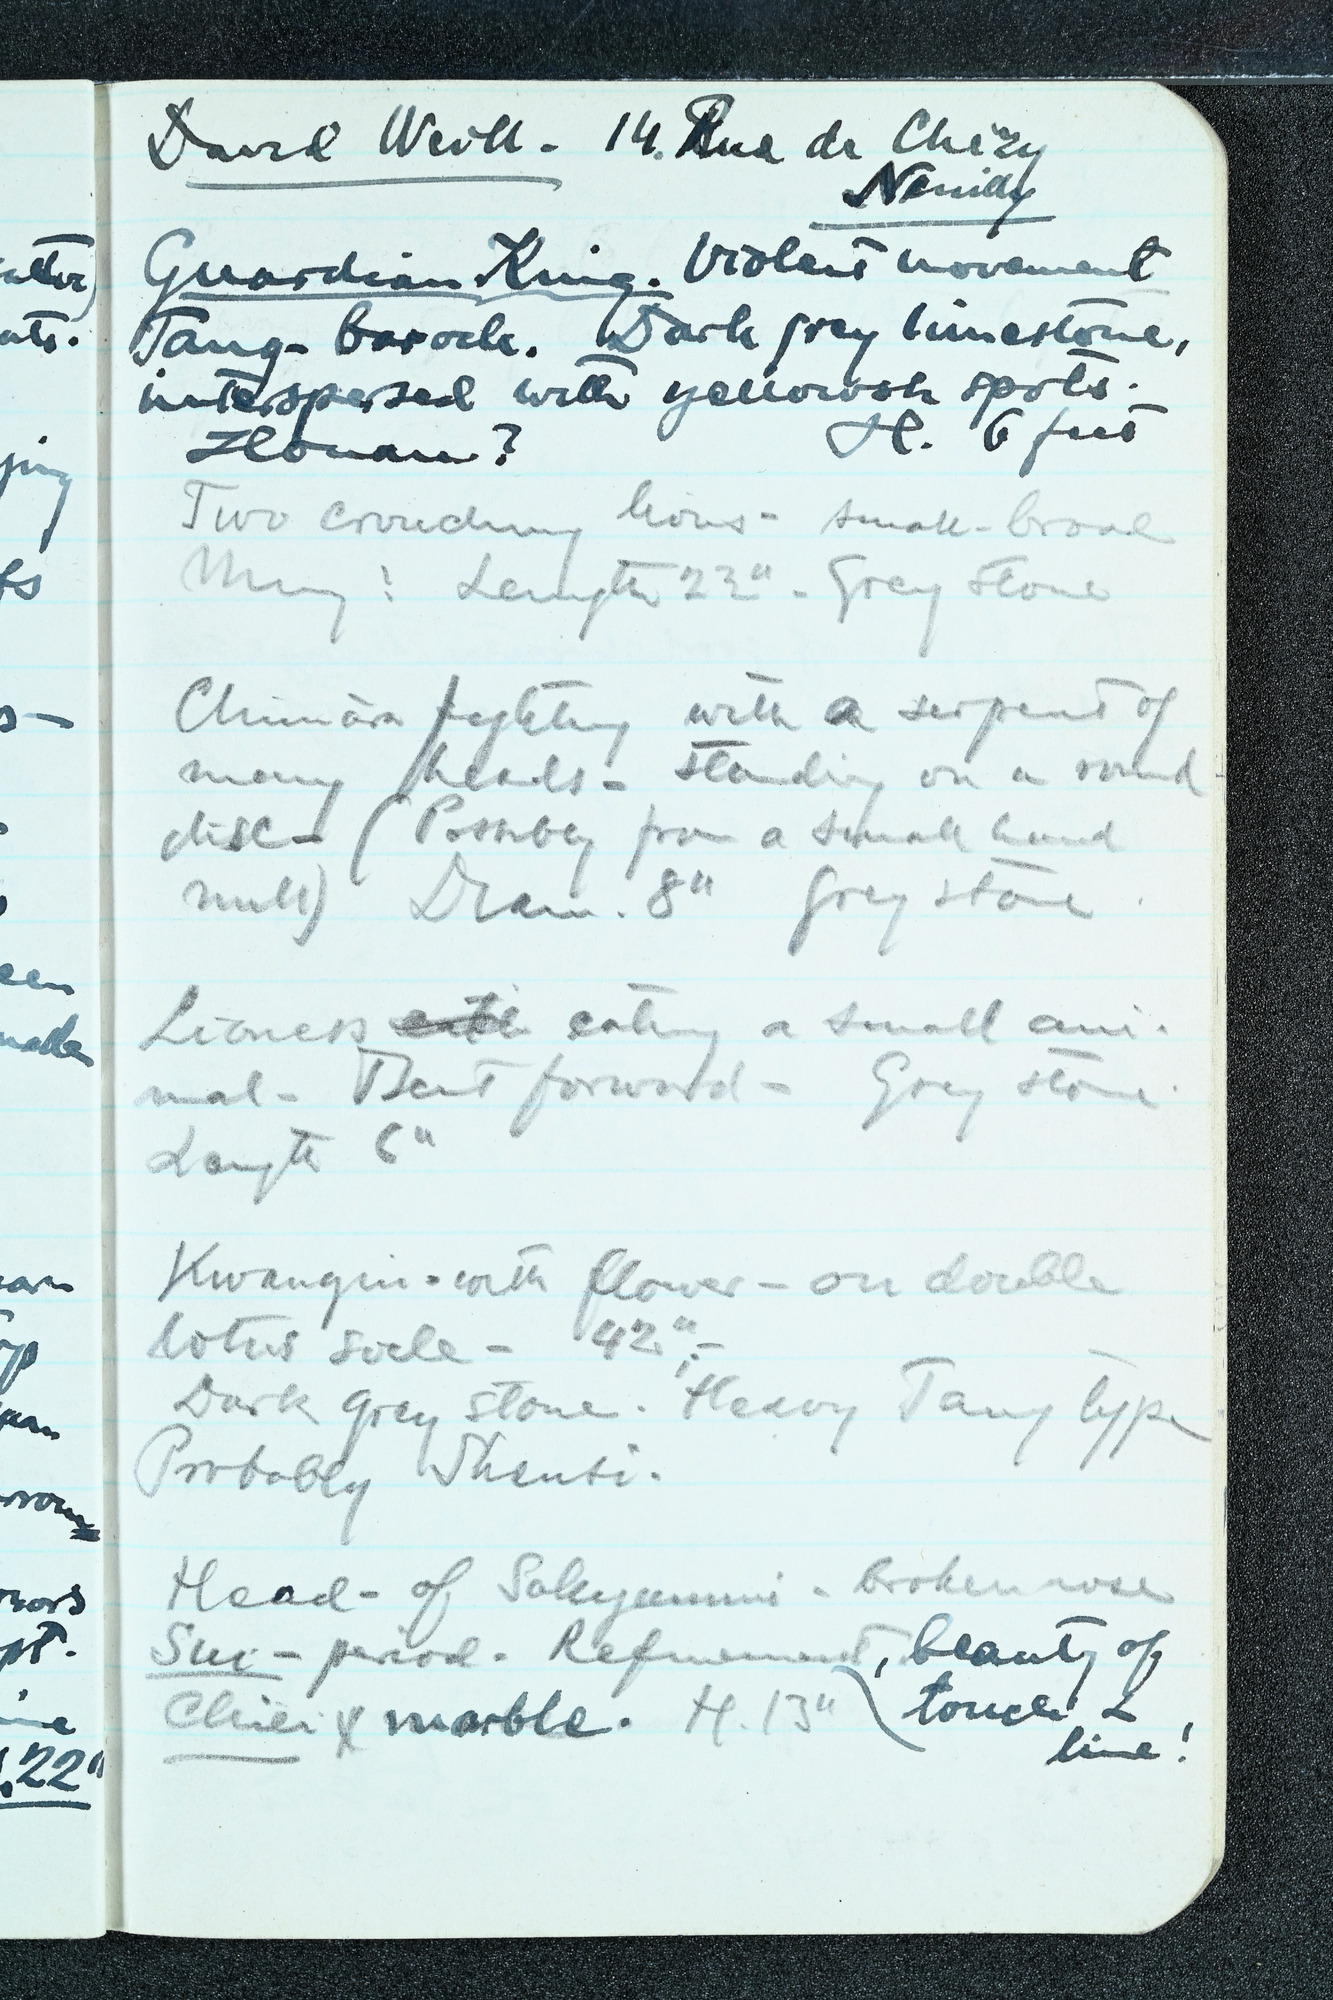 David Weill - 14. Rue de Chézy
Neuilly
Guardian King. Violent movement
Tang - barock. Dark grey limestone,
interspersed with yellowish spots.
Honan? H. 6 feet
Two crouching lions - small - broad
Ming? Length 23" - Grey stone
Chimära fighting with a serpent of
many heads - standing on a round
disc - (Possibly from a small hand
mill) Diam. 8" Grey stone.
Lioness eating a small ani-
mal - Bent forward - Grey stone.
Length 6"
Kwanyin - with flower - on double
lotus socle - 42" -
Dark grey stone. Heavy Tang type
Probably Shensi.
Head - of Sakyamuni - broken nose
Sui - period - Refinement, beauty of
Chili marble. H. 13" touch &
line!
ts
s -
made
pt.
22"